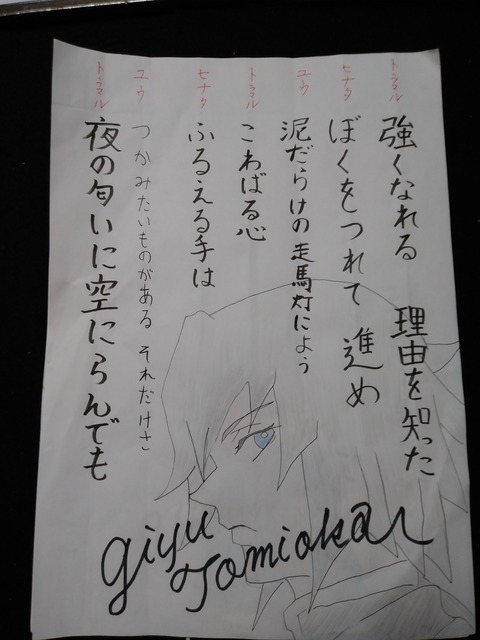 トラマル
強くなれる 理由を知った
ヒナタ
ぼくをつれて 進め
ユウ
泥だらけの走馬灯によう
トラマル
こわばる心
ヒナタ
ふるえる手は
ユウ
つかみたいものがある それだけさ
トラマル
夜の匂いに空にらんでも
giyu
Tomioka